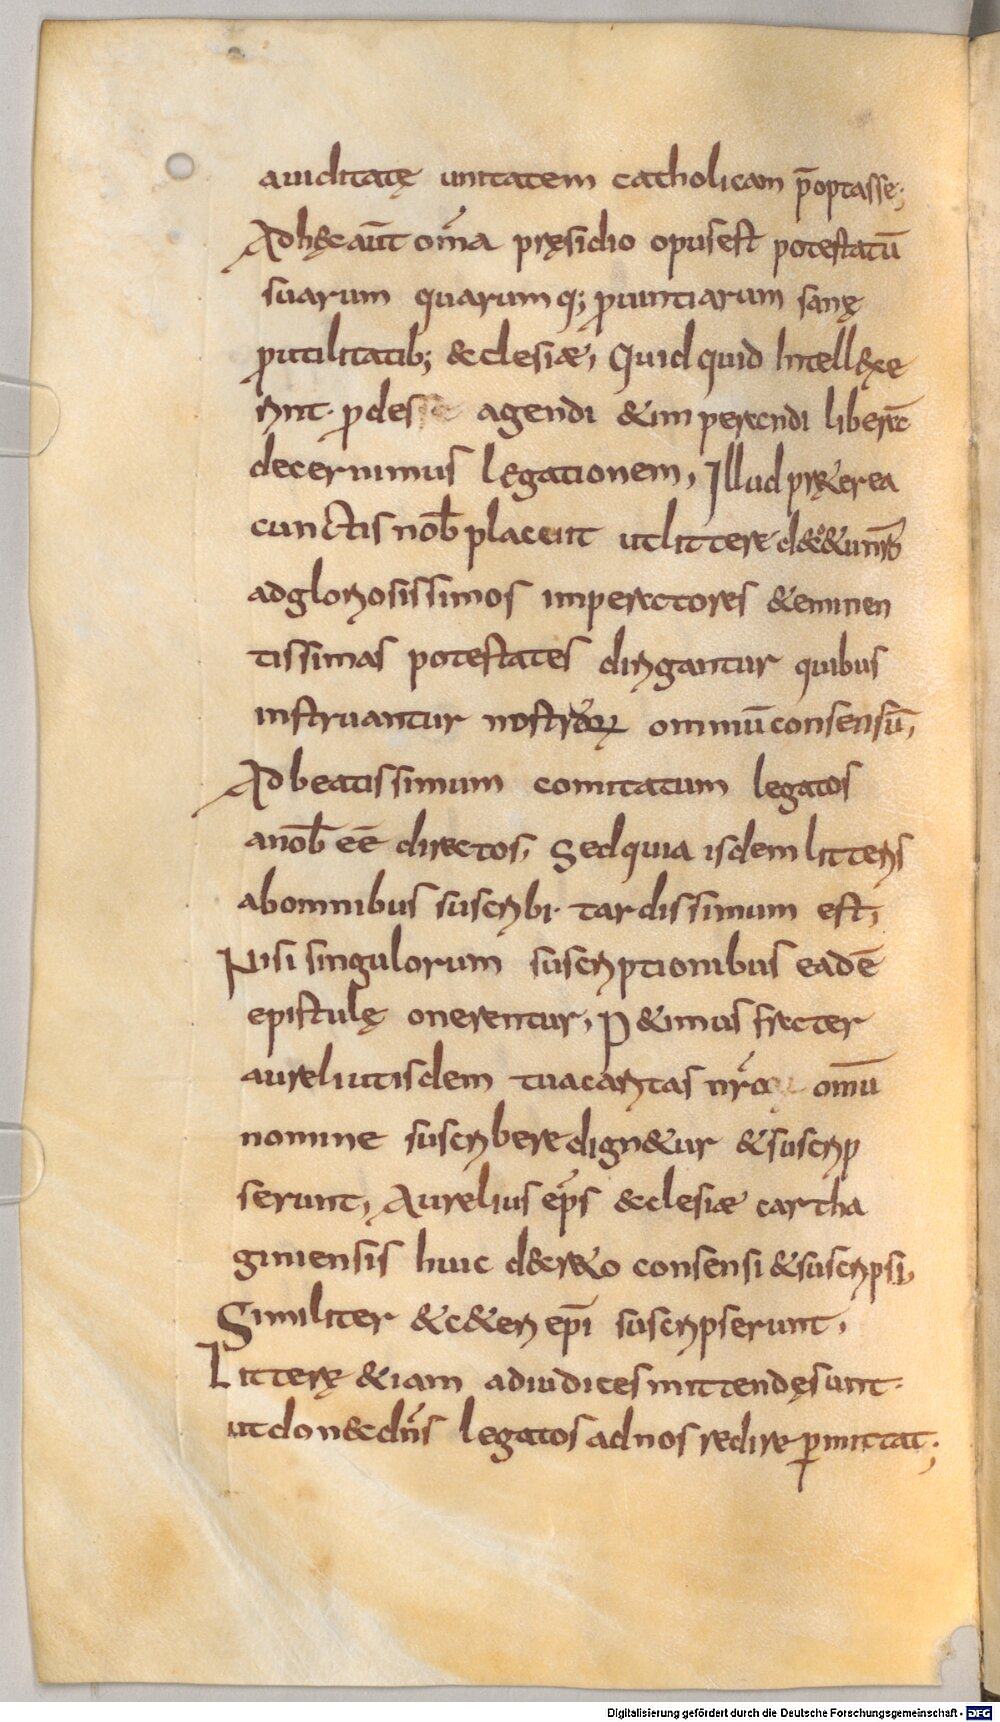 auiditatę unitatem catholicam p̄optasse;
Adhęc aūt om̄a pręsidio opus est potestatū
suarum quarumq; ꝓuintiarum sanę
ꝓutilitatib; &clesiæ, Quidquid Intell&xe
rint· ꝓdesse agendi &imperandi liberā
decernimus legationem, Illud pr&̨erea
cunctis nob̄ placuit ut littere de
adgloriosissimos imperatores &eminen
tissimas potestates dirigantur quibus
instruantur nostrorꝝ omniū consensū,
Ad beatissimum comitatum legatos
a nob̄ eē directos, Sed quia isdem litteris
ab omnibus suscribi· tardissimum est,
Nisi singulorum suscriptionibus eadē
epistulę onerentur, P&imus frater
aureli ut isdem tua caritas nr̄oꝝ omiū
nomine suscribere dign&ur &suscrip
serunt, Aurelius ep̄s &clesiæ cartha
giniensis huic decr&o consensi &suscripsi,
Similiter &c&eri ep̄i suscripserunt,
Litterę &iam ad iudices mittendę sunt·
ut don&c dn̄s legatos ad nos redire ꝑmittat;
Digitalisierung gefördert durch die Deutsche Forschungsgemeinschaft - DFG